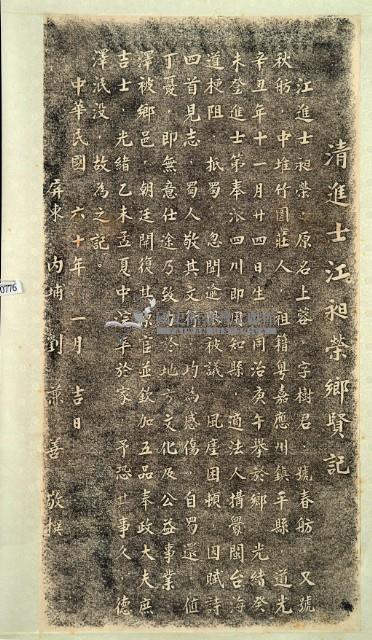 清進士江昶榮鄉賢記
江進士昶榮．原名上蓉．字樹君．號春舫．又號
秋舫．中堆竹圍莊人．祖籍粵嘉應州鎮平縣．道光
辛丑年十一月廿四日生．同治庚午舉於鄉．光緒癸
未登進士第奉派四川即用知縣．適法人構釁閩台海
道梗阻．抵蜀．忽聞逾限被議．風塵困頓．因賦詩
四首見志．蜀人敬其文．均為感傷．自蜀還．值
丁憂．即無意仕途乃致力地方文化及公益事業
澤被鄉邑．朝廷開復其原官並欽加五品奉政大夫庶
吉士．光緒乙未孟夏中浣卒於家．予恐其事久．德
澤泯沒．故為之記。
中華民國六十年一月吉日
屏東內埔劉兼善敬撰
0776